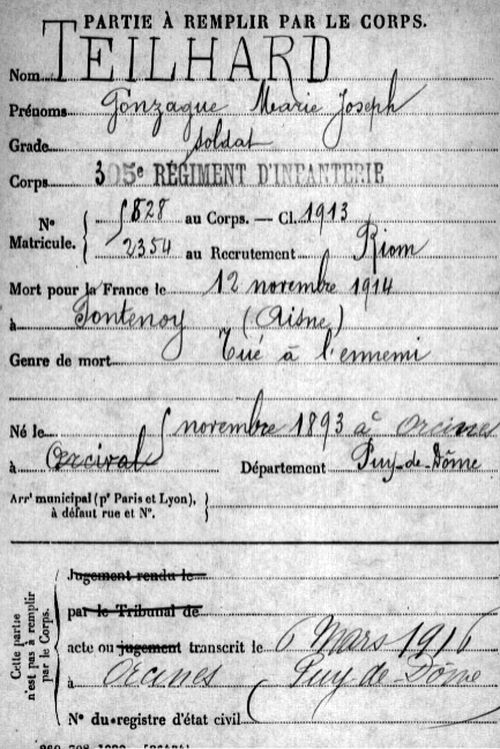 PARTIE À REMPLIR PAR LE CORPS.
Nom TEILHARD
Prénoms Gonzague Marie Joseph
Grade soldat
Corps 305e RÉGIMENT D'INFANTERIE
N° Matricule. { 5828 au Corps. — Cl. 1913
2354 au Recrutement Riom
Mort pour la France le 12 novembre 1914
à Fontenoy (Aisne)
Genre de mort Tué à l'ennemi
Né le 5 novembre 1893 à Orcines
à Orcival Département Puy-de-Dôme
Arrt municipal (pr Paris et Lyon), à défaut rue et N°.
Cette partie n'est pas à remplir par le Corps.
Jugement rendu le
par le Tribunal de
acte ou jugement transcrit le 6 Mars 1916
à Orcines Puy-de-Dôme
N° du registre d'état civil